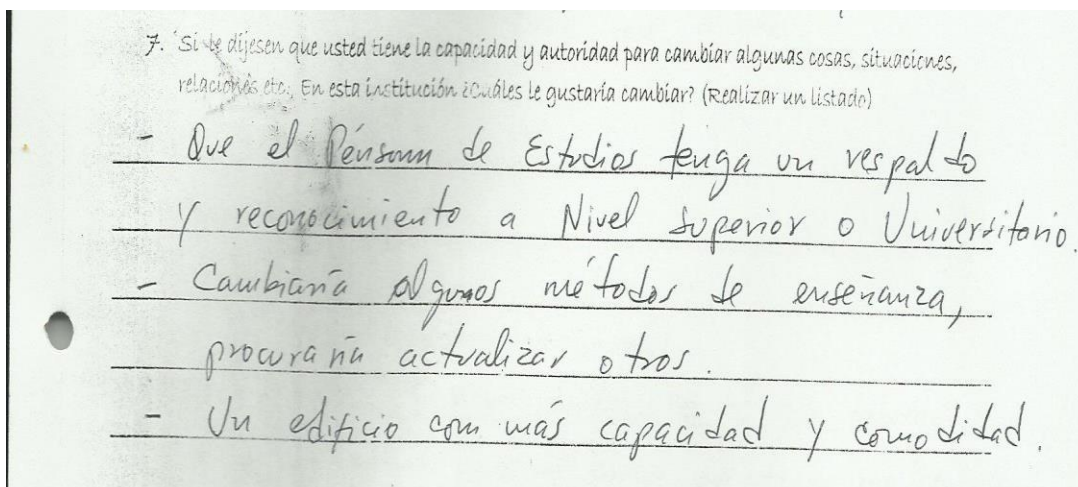 7. Si le dijesen que usted tiene la capacidad y autoridad para cambiar algunas cosas, situaciones,
relaciones etc. En esta institución ¿Cuáles le gustaría cambiar? (Realizar un listado)
- Que el Pénsum de Estudios tenga un respaldo
y reconocimiento a Nivel Superior o Universitario.
- Cambiaría algunos métodos de enseñanza,
procuraría actualizar otros.
- Un edificio com más capacidad y comodidad.